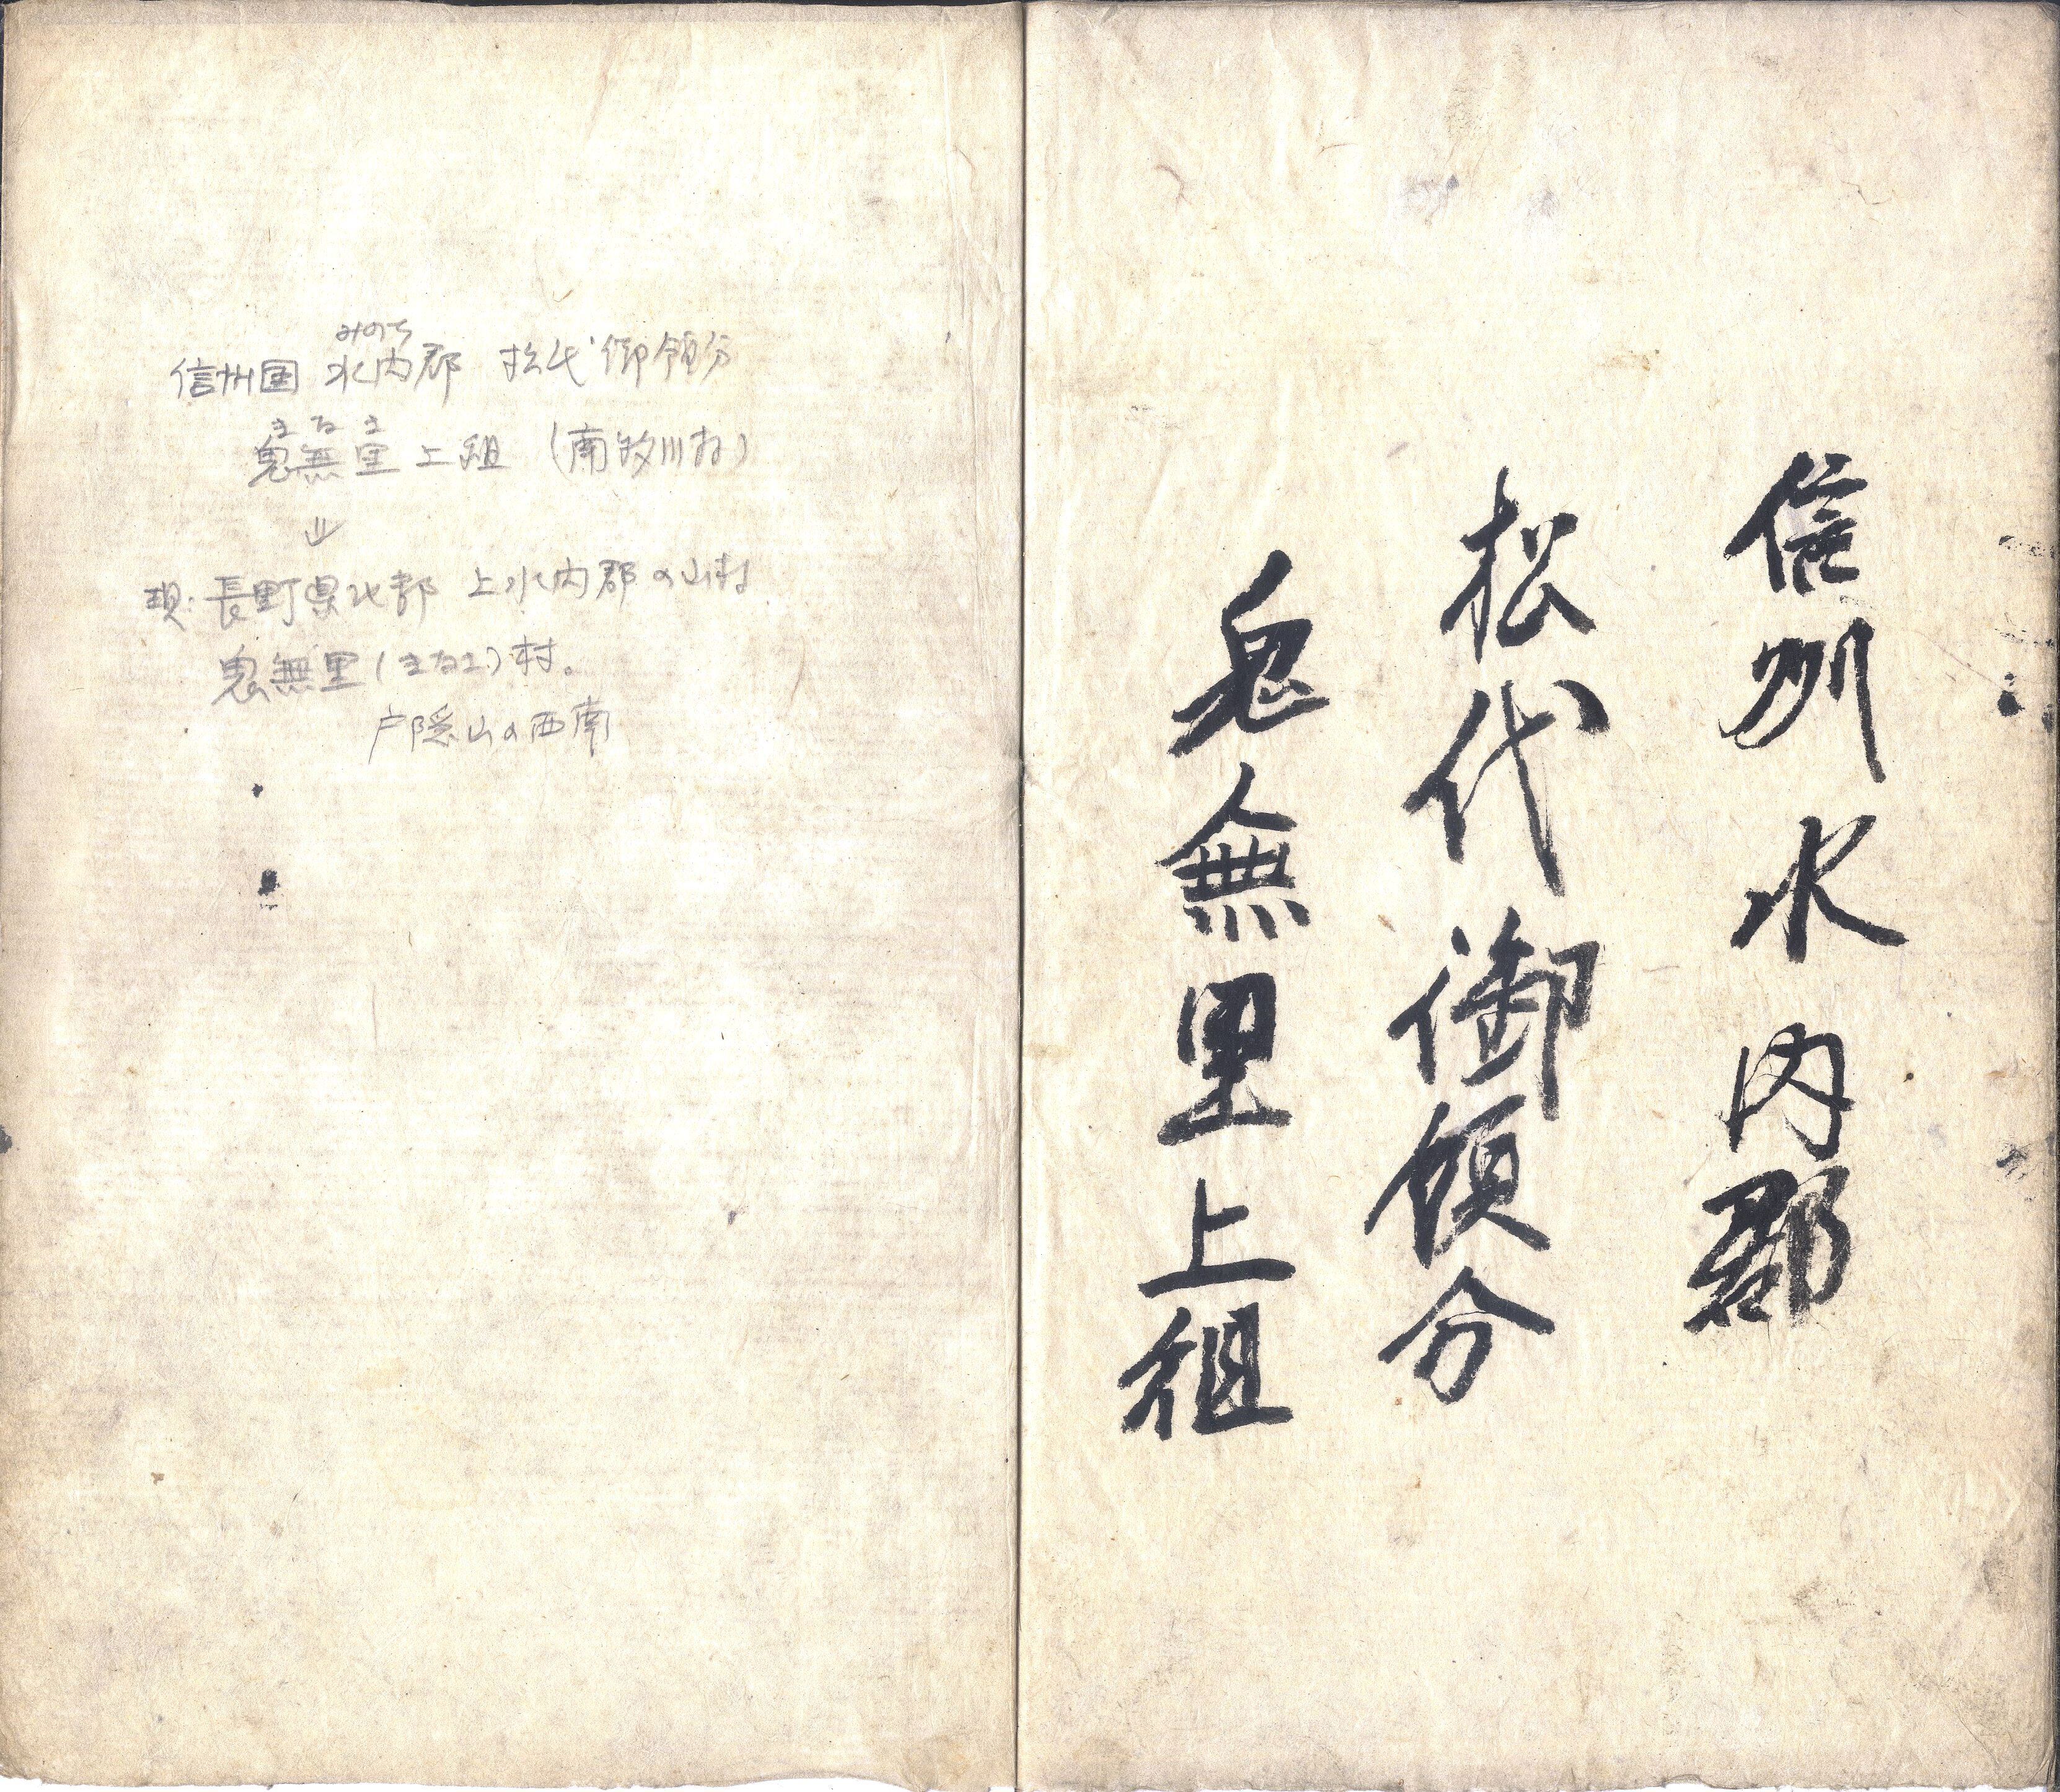 信州水内郡
松代御領分
鬼無里上組
みのち
信州国 水内郡 松代御領分
きなさ
鬼無里上組（南牧川村）
⇓
現：長野県北部 上水内郡の山村
鬼無里（きなさ）村。
戸隠山の西南